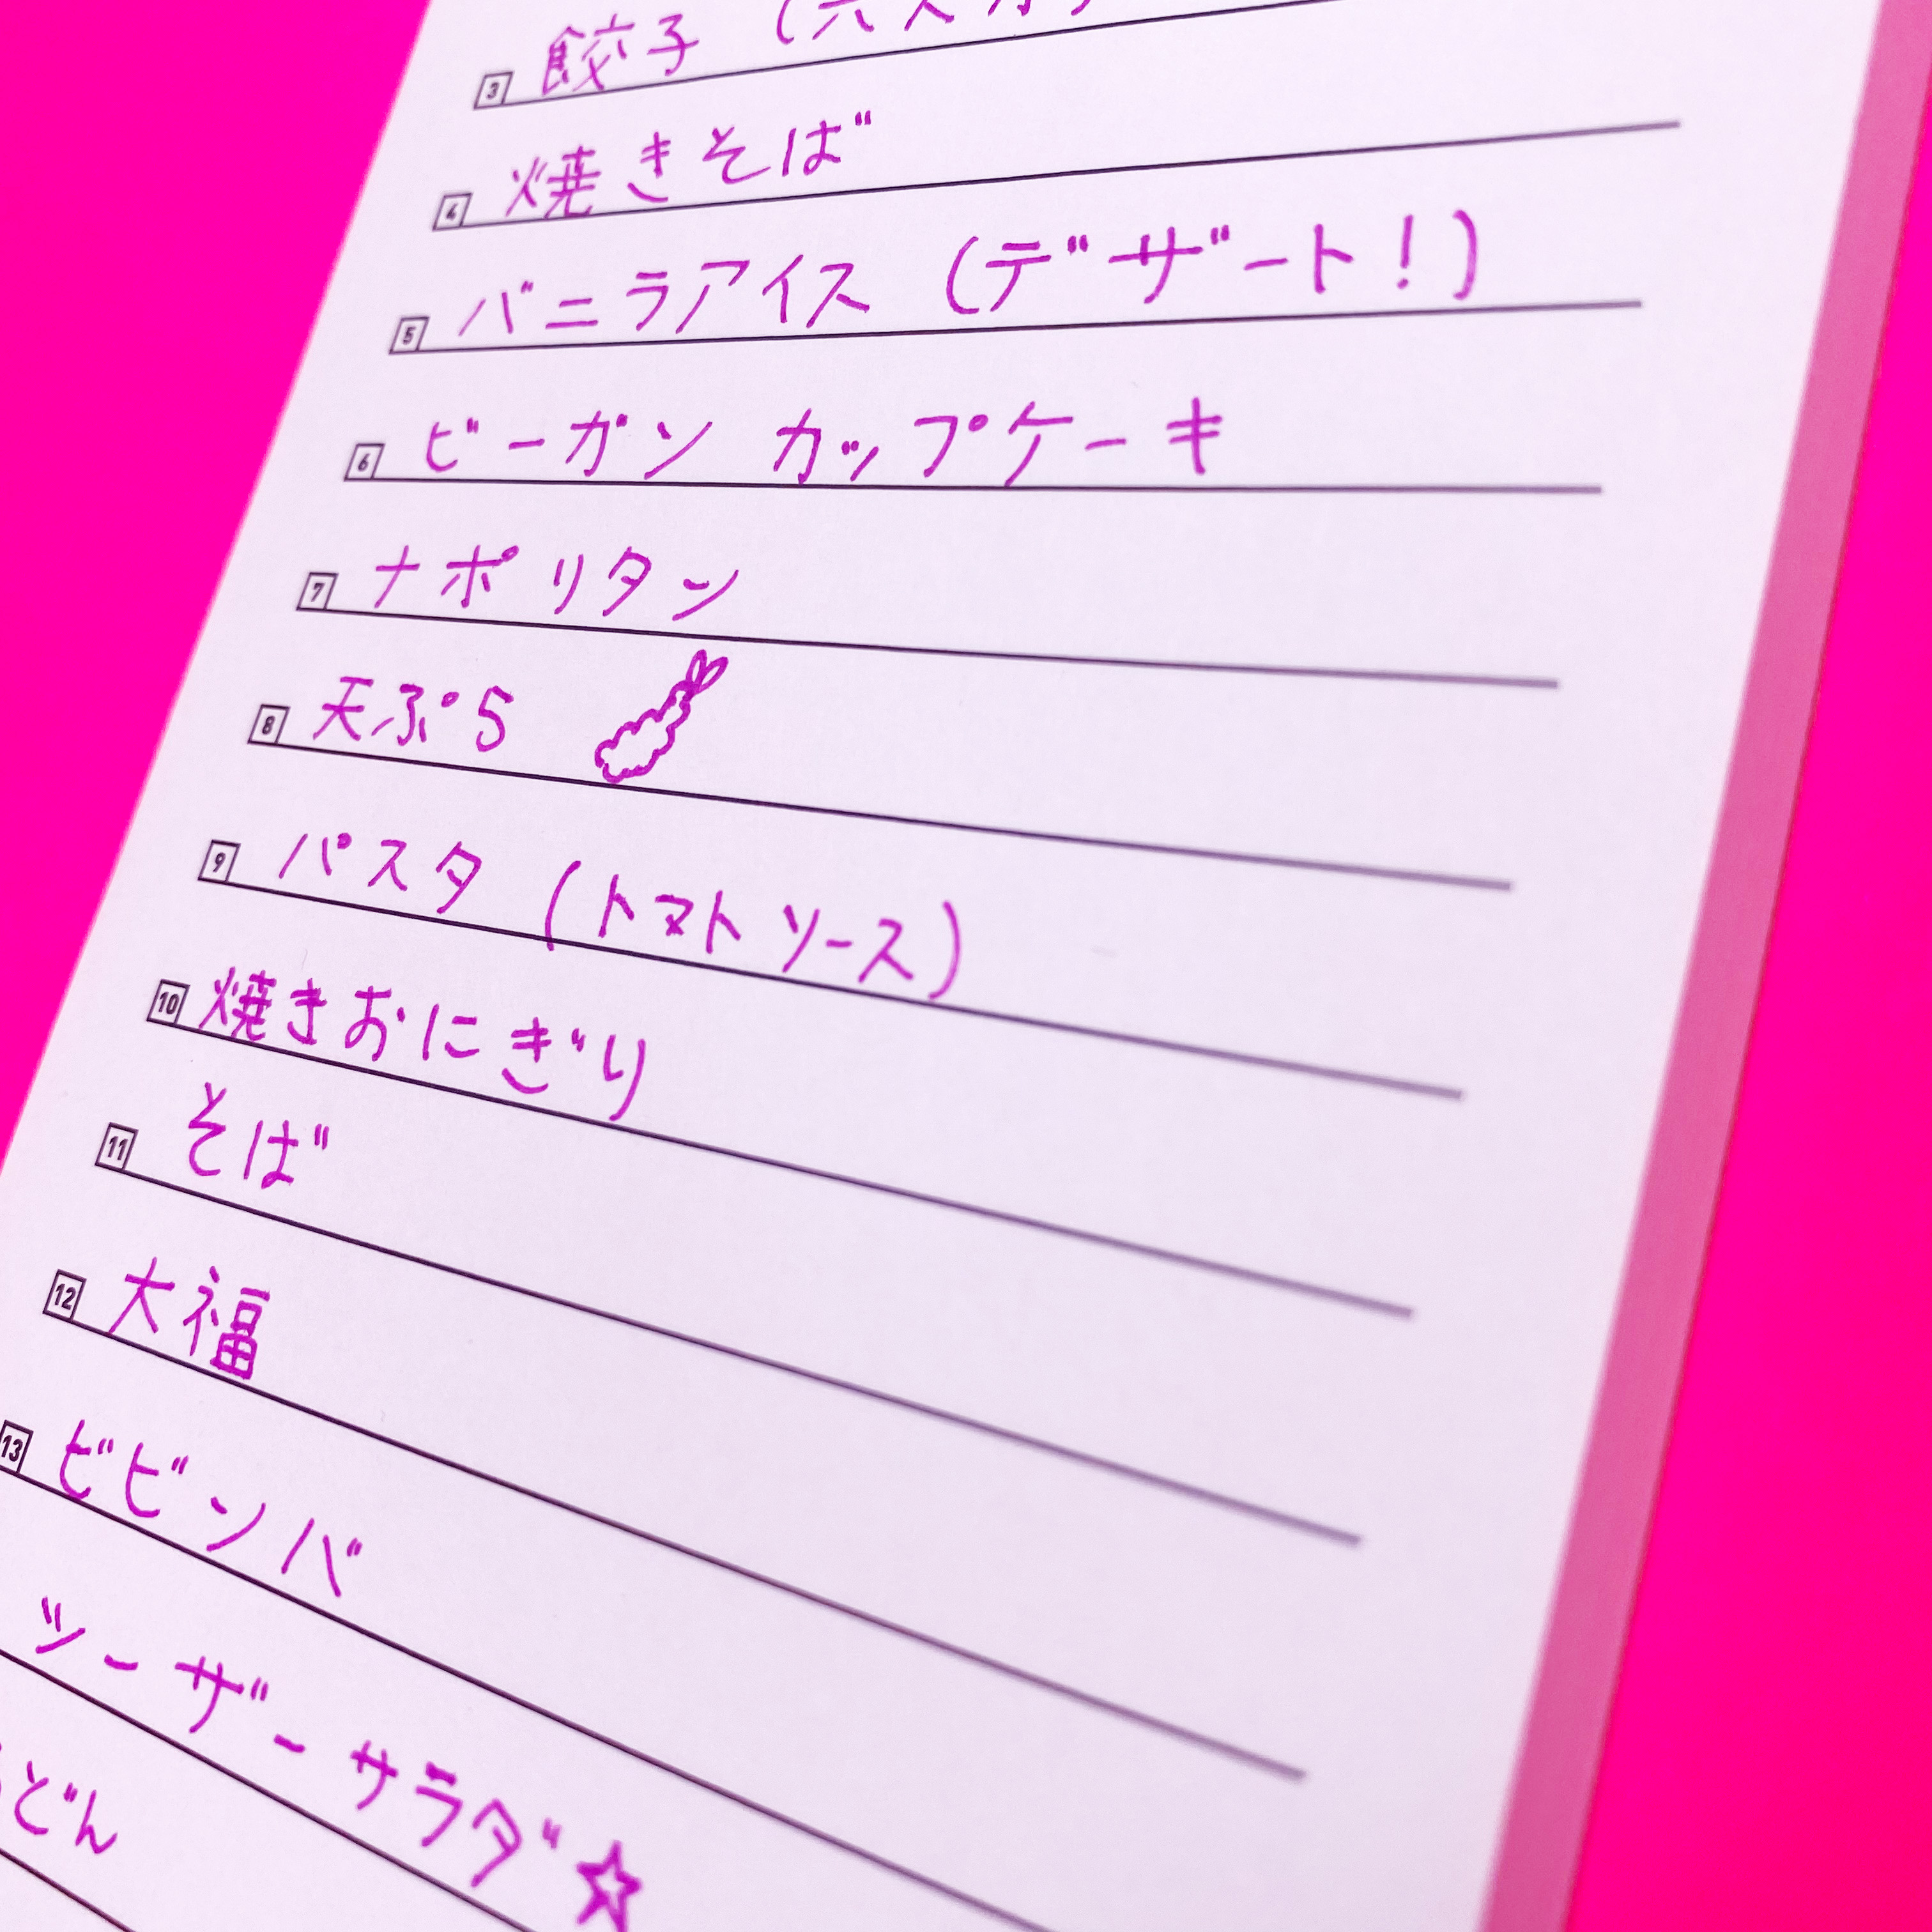 3 餃子 (六人分)
4 焼きそば
5 バニラアイス (デザート!)
6 ビーガン カップケーキ
7 ナポリタン
8 天ぷら
9 パスタ (トマト ソース)
10 焼きおにぎり
11 そば
12 大福
13 ビビンバ
ツーザーサラダ☆
どん